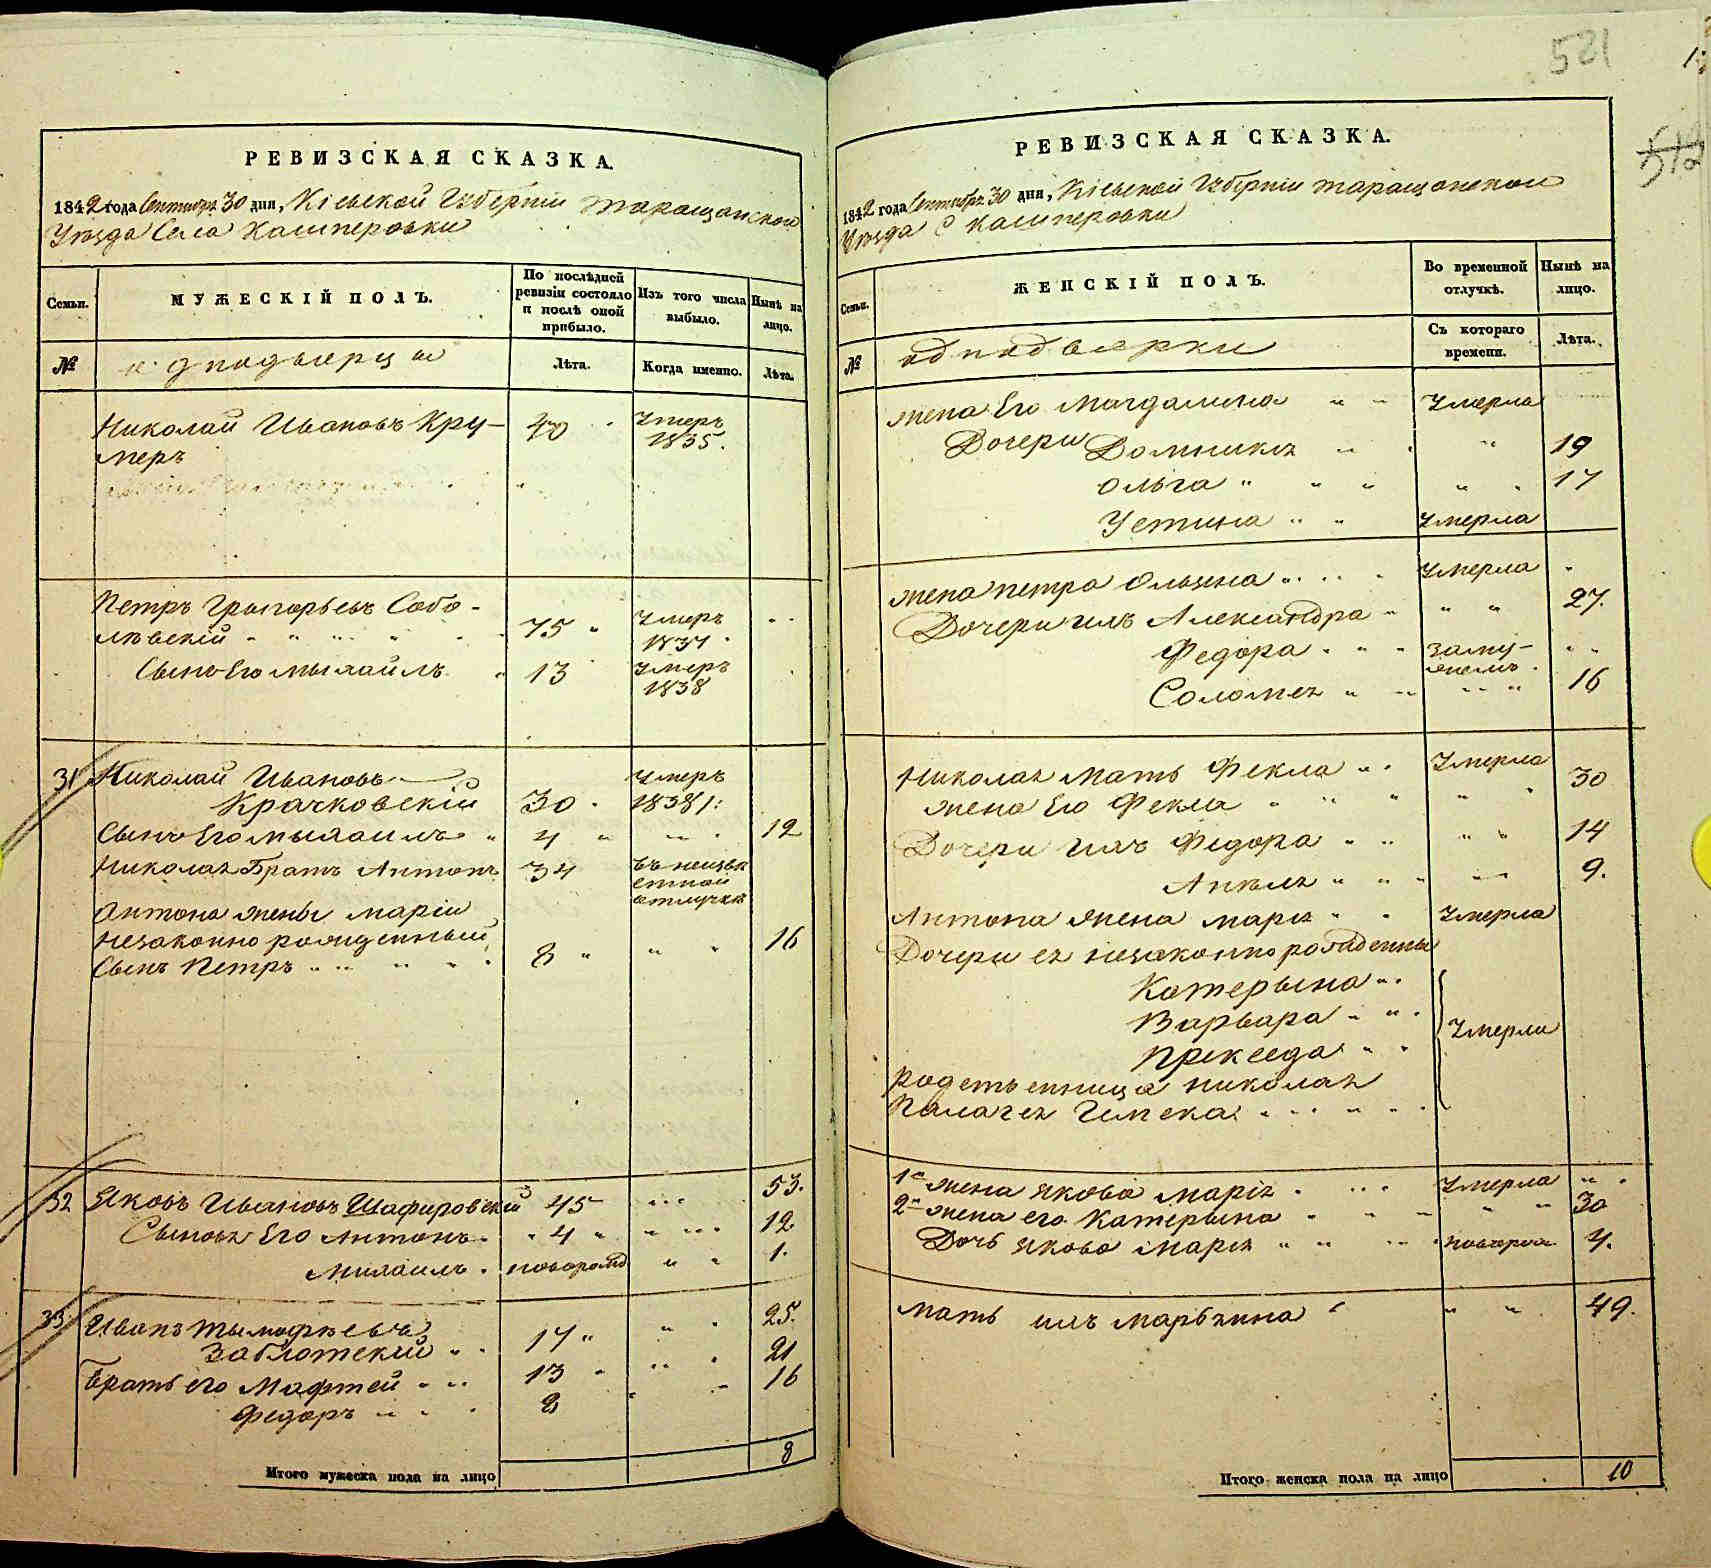 РЕВИЗСКАЯ СКАЗКА.
1842 года Сентября 30 дня, Кіевской Губерніи Таращанской
Уезда Села Кашперовки
Семьи.
МУЖЕСКІЙ ПОЛЪ.
По послѣдней ревизіи состояло и послѣ оной прибыло.
Изъ того числа выбыло.
Нынѣ на лицо.
№
однодворцы
Лѣта.
Когда именно.
Лѣта.
Николай Ивановъ Кру- 40 Умеръ 1835.
меръ
Петръ Григорьевъ Собо-
лѣвскій 75 Умеръ 1837
Сынъ Его Мыхаилъ 13 Умеръ 1838
31 Николай Ивановъ Умеръ
Крачковскій 30 1838 г:
Сынъ Его Мыхаилъ 4 12
Николая Братъ Антонъ 34 въ неизвѣстной отлучкѣ
Антона жены Маріи
Незаконно рожденный
Сынъ Петръ 8 16
32 Яковъ Ивановъ Шафировскій 45 53.
Сыновья Его Антонъ 4 12
Михаилъ новорожд 1.
33 Иванъ Тымофѣевъ 25.
Заблотскій 17
Братья его Мафтей 13 21
Федоръ 8 16
Итого мужеска пола на лицо 8
521
512
РЕВИЗСКАЯ СКАЗКА.
1842 года Сентября 30 дня, Кіевской Губерніи Таращанской
Уезда С Кашперовки
Семьи.
ЖЕНСКІЙ ПОЛЪ.
Во временной отлучкѣ.
Нынѣ на лицо.
№
однодворки
Съ котораго времени.
Лѣта.
жена Его Магдалина Умерла
Дочери Домникя 19
Ольга 17
Устина Умерла
жена Петра Ульяна Умерла
Дочери ихъ Александра 27.
Федора замужемъ
Соломея 16
Николая мать Фекла Умерла
жена Его Фекла 30
Дочери ихъ Федора 14
Анеля 9.
Антона жена Марія Умерла
Дочери ея незаконно рожденны
Катерына
Варвара Умерли
Прикседа
родственница Николая
Палагея
1я жена Якова Марія Умерла
2я жена его Катерына 30
Дочь Якова Марія новорож 4.
Мать ихъ Марьянна 49.
Итого женска пола на лицо 10